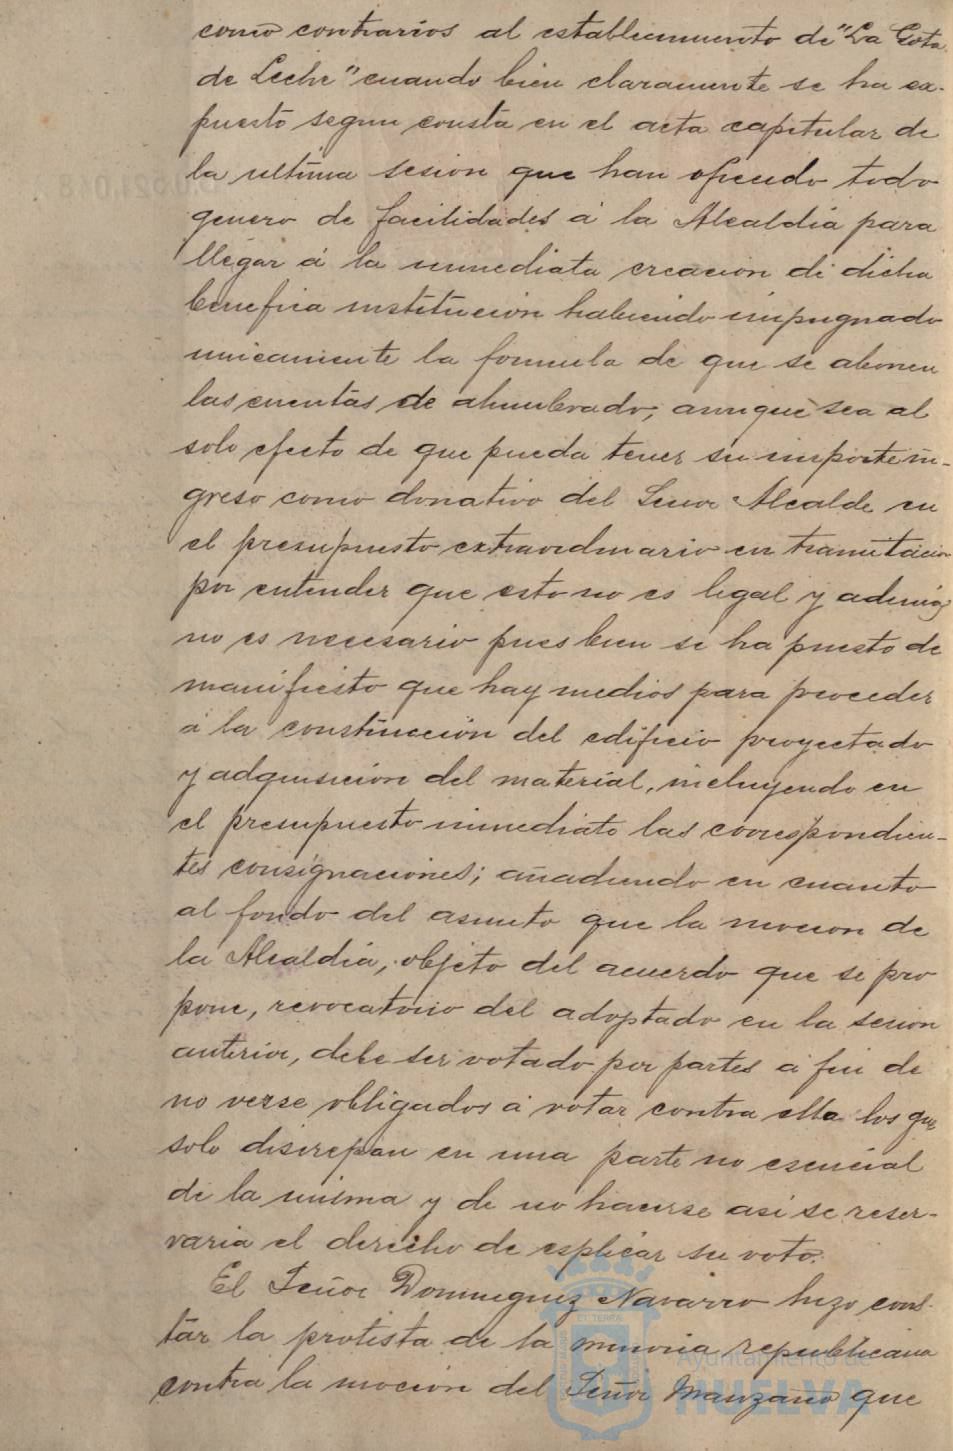 como contrarios al establecimiento de "La Gota
de Leche" cuando bien claramente se ha ex-
puesto segun consta en el acta capitular de
la ultima sesion que han ofrecido todo
genero de facilidades á la Alcaldia para
llegar á la inmediata creacion de dicha
benefica institucion habiendo impugnado
unicamente la formula de que se abonen
las cuentas de alumbrado, aunque sea al
solo efecto de que pueda tener su importe in-
greso como donativo del Señor Alcalde en
el presupuesto extraordinario en tramitacion
por entender que esto no es legal y además
no es necesario pues bien se ha puesto de
manifiesto que hay medios para proceder
á la construcción del edificio proyectado
y adquisición del material, incluyendo en
el presupuesto inmediato las correspondien-
tes consignaciones; añadiendo en cuanto
al fondo del asunto que la mocion de
la Alcaldía, objeto del acuerdo que se pro
pone, revocatorio del adoptado en la sesion
anterior, debe ser votado por partes a fin de
no verse obligados á votar contra ella los que
solo discrepan en una parte no esencial
de la misma y de no hacerse asi se reser-
varia el derecho de esplicar su voto.
El Señor Dominguez Navarro hizo cons-
tar la protesta de la minoria republicana
contra la mocion del Señor Manzano que
Ayuntamiento de
HUELVA